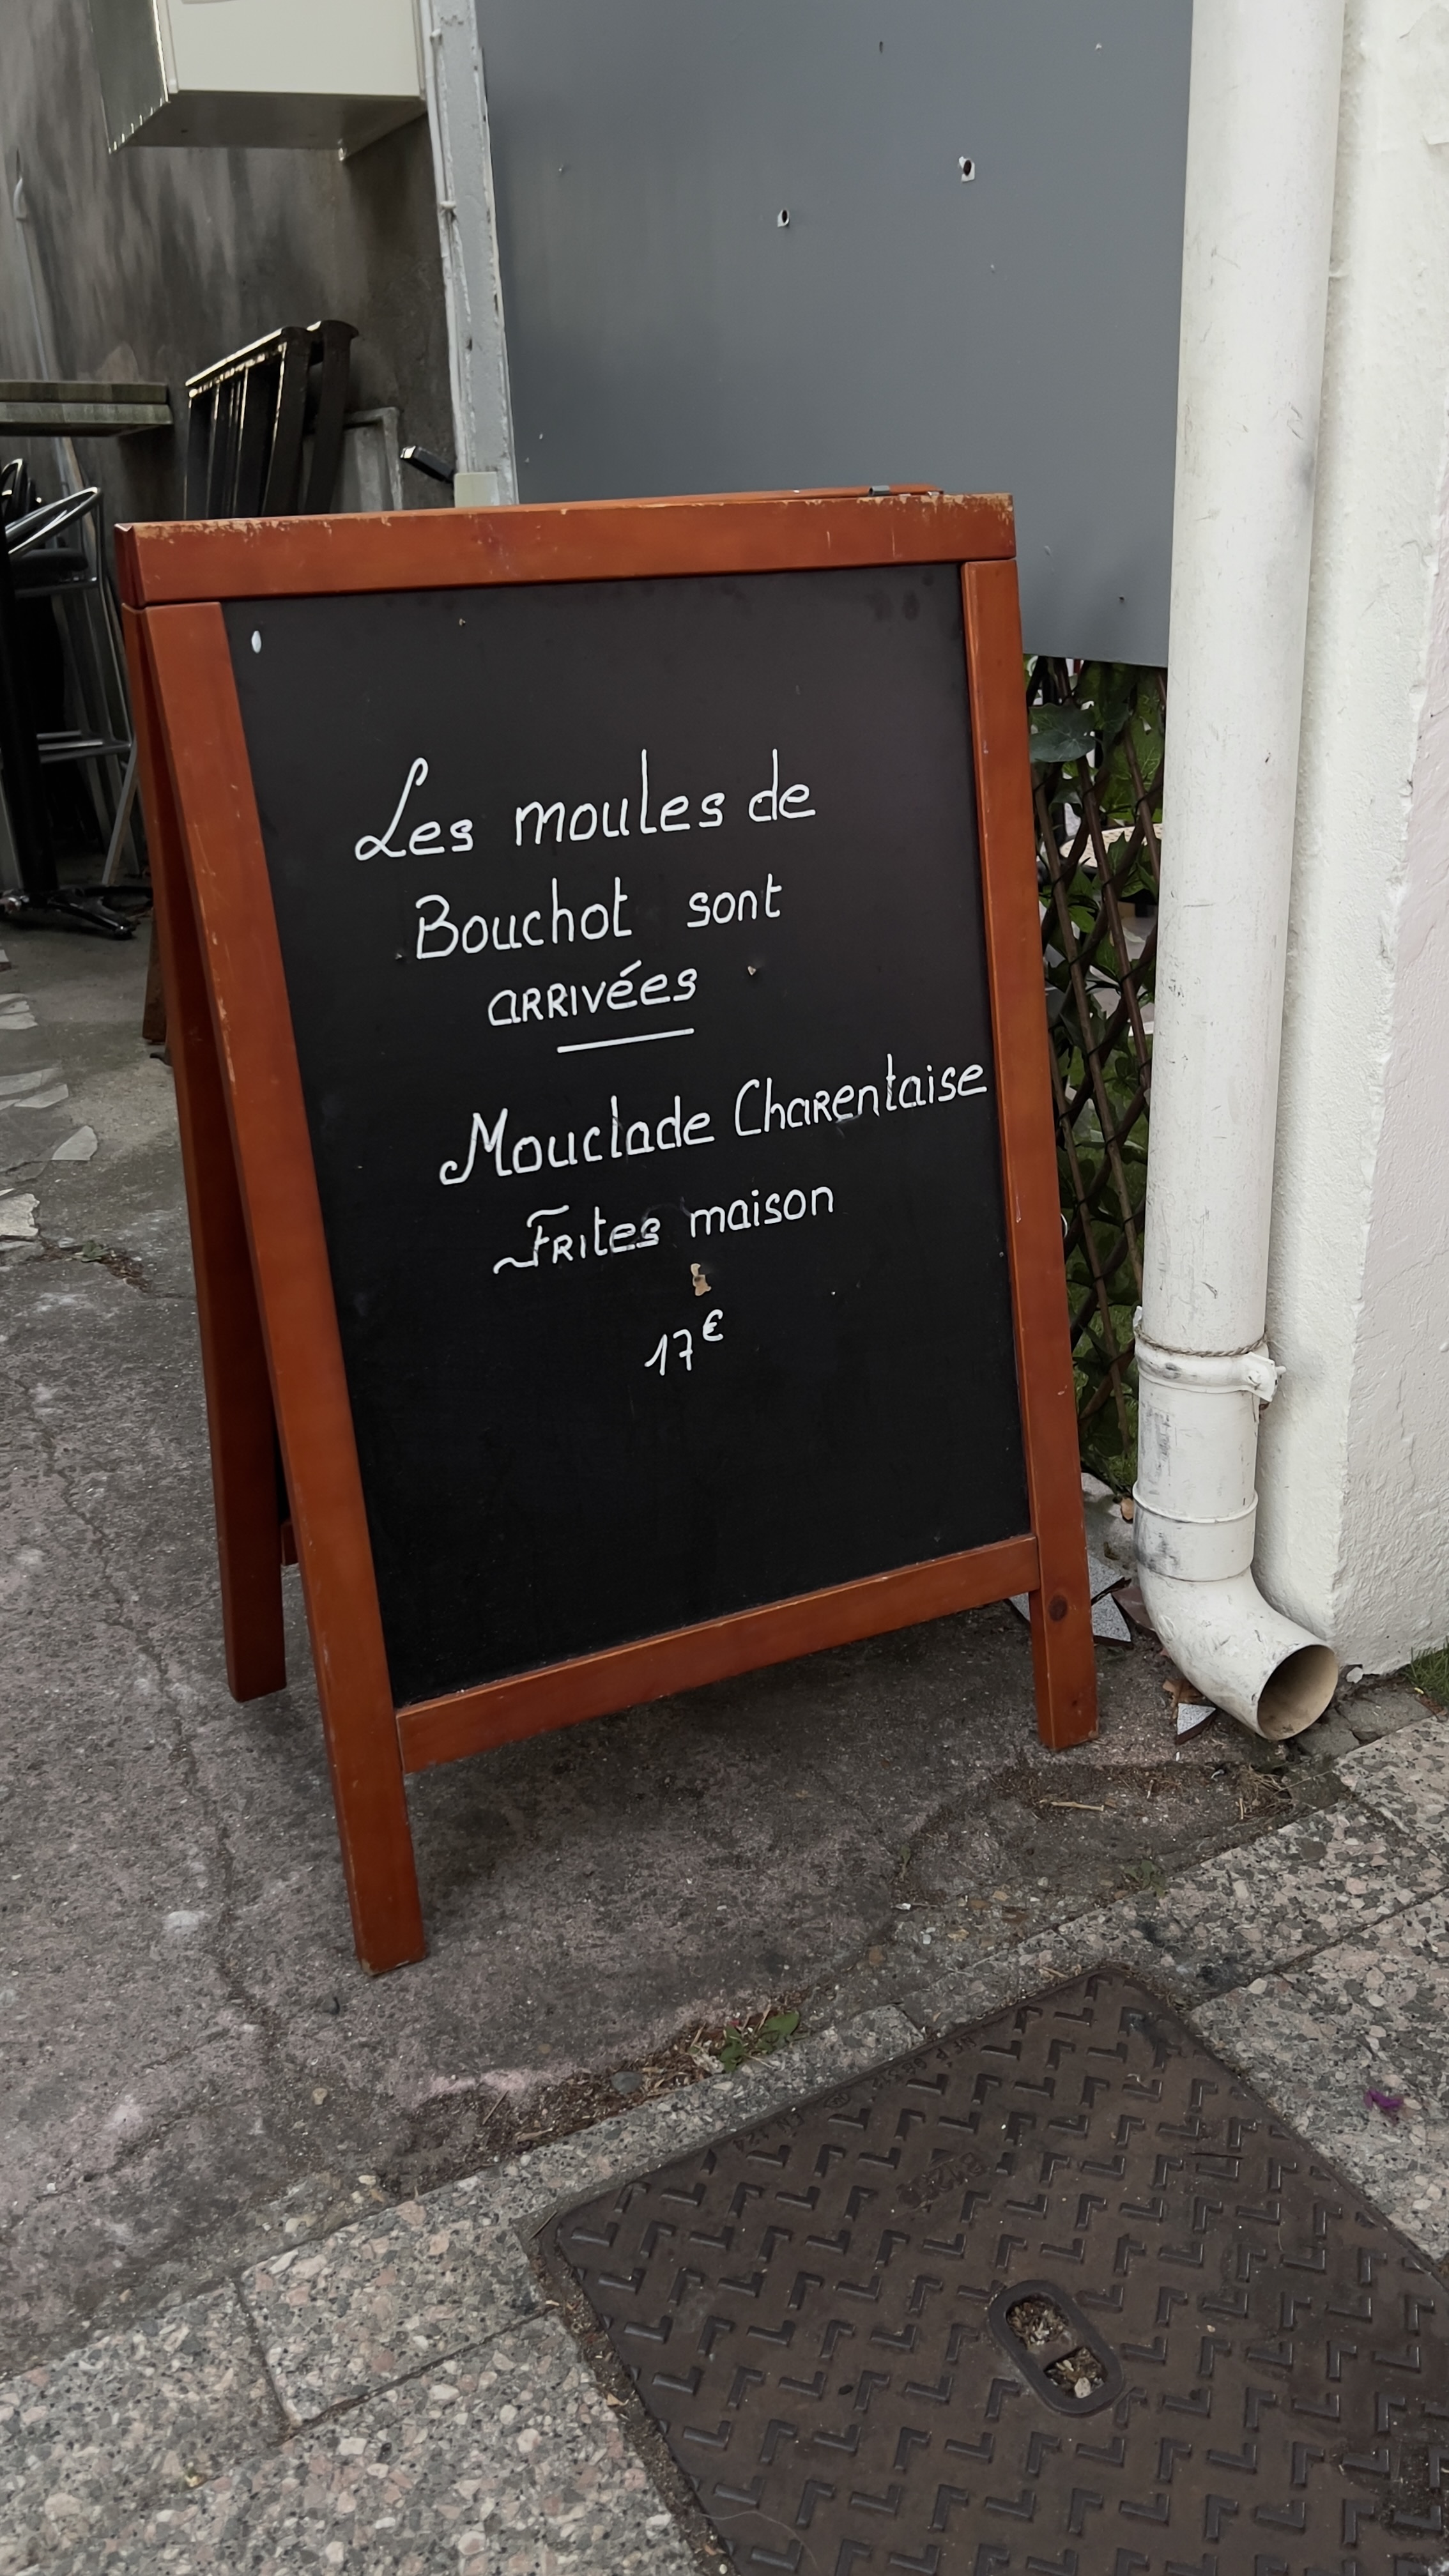 Les moules de
Bouchot sont
arrivées
Mouclade Charentaise
Frites maison
17€